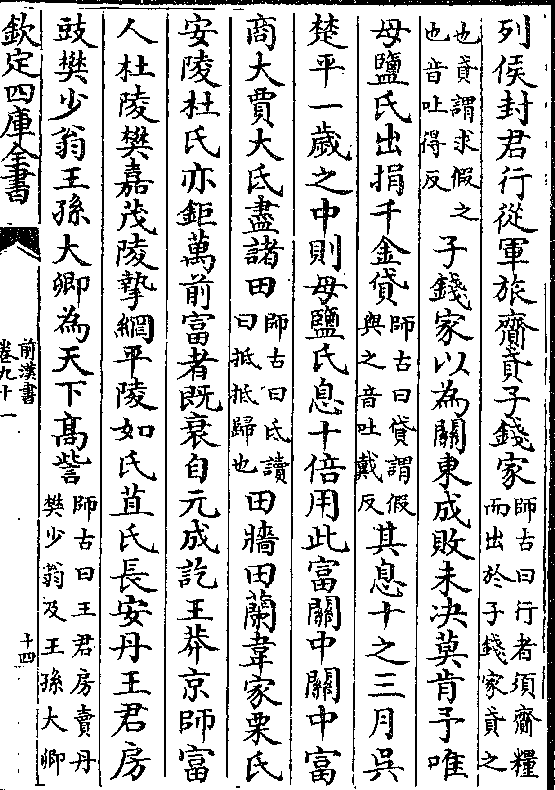 列侯封君行從軍旅齎貣子錢家師古曰行者須齎糧而出於子錢家貣之
也貣謂求假之也音吐得反子錢家以為關東成敗未決莫肯予唯
母鹽氏出捐千金貸師古曰貸謂假與之音吐戴反其息十之三月吳
楚平一歲之中則母鹽氏息十倍用此富關中關中富
商大賈大氐盡諸田師古曰氐讀曰抵抵歸也田牆田蘭韋家栗氏
安陵杜氏亦鉅萬前富者既衰自元成訖王莽京師富
人杜陵樊嘉茂陵摯網平陵如氏苴氏長安丹王君房
豉樊少翁王孫大卿為天下高訾師古曰王君房賣丹樊少翁及王孫大卿
欽定四庫全書
前漢書
卷九十一
十四